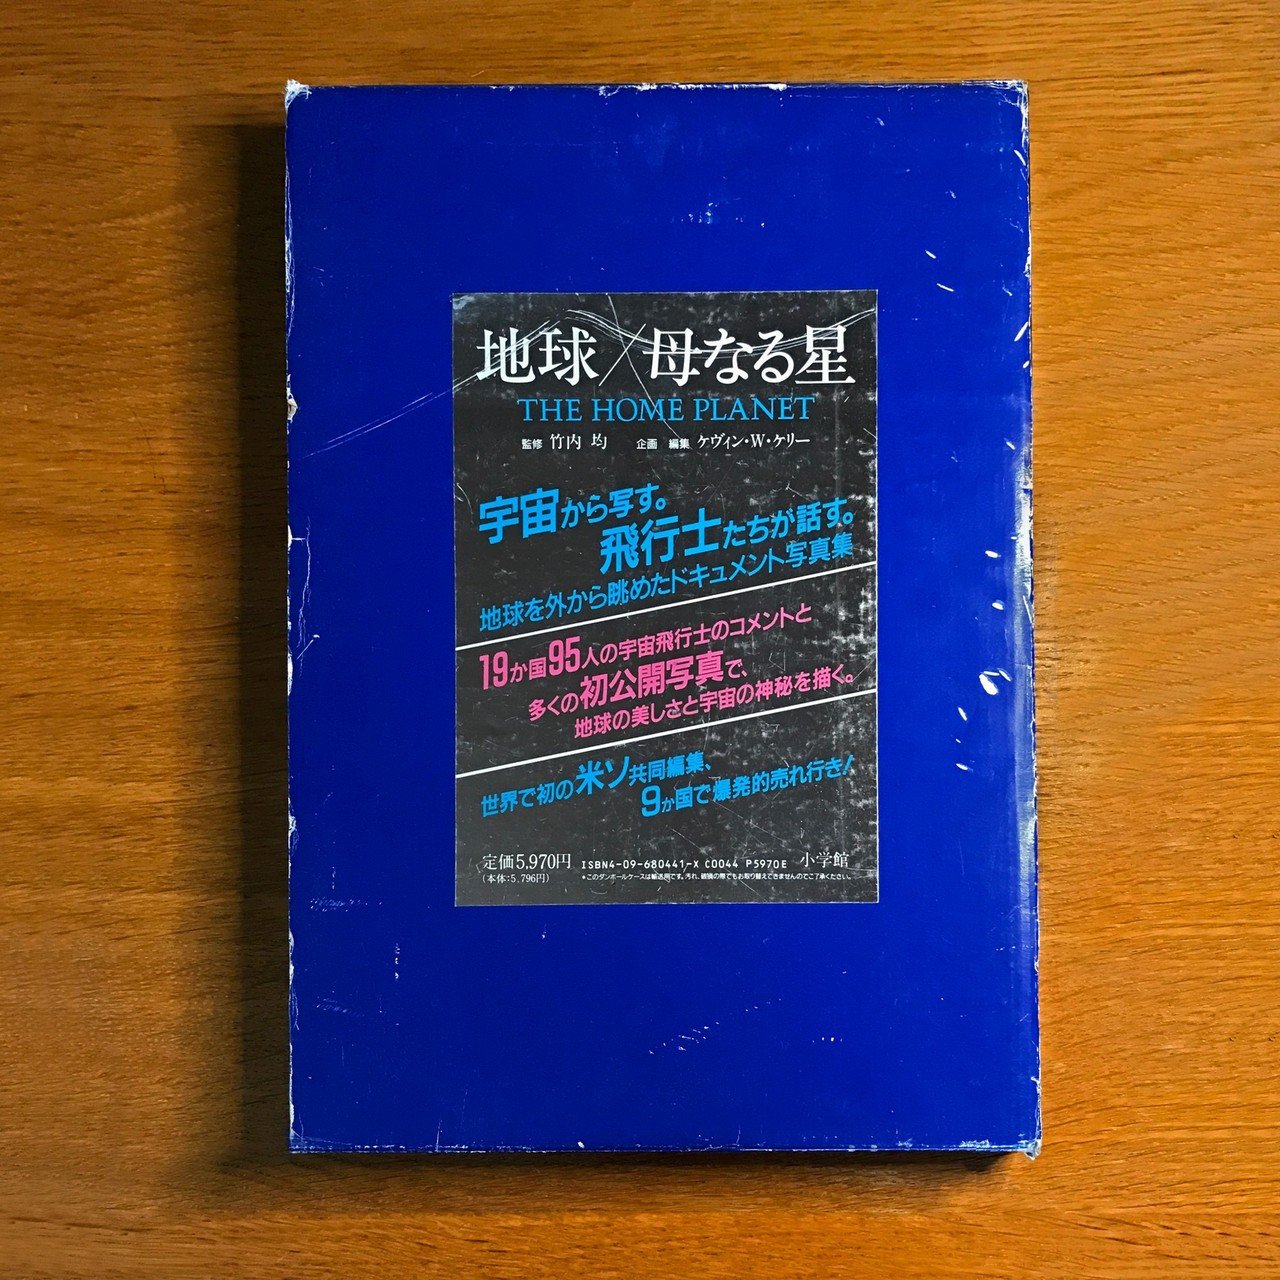 地球／母なる星
THE HOME PLANET
監修 竹内 均 企画 編集 ケヴィン・W・ケリー
宇宙から写す。
飛行士たちが話す。
地球を外から眺めたドキュメント写真集
19か国95人の宇宙飛行士のコメントと
多くの初公開写真で、
地球の美しさと宇宙の神秘を描く。
世界で初の米ソ共同編集、
9か国で爆発的売れ行き!
定価5,970円 ISBN4-09-680441-X C0044 P5970E 小学館
(本体:5,796円) *このダンボールケースは輸送用です。汚れ、破損の際でもお取り替えできませんのでご了承ください。